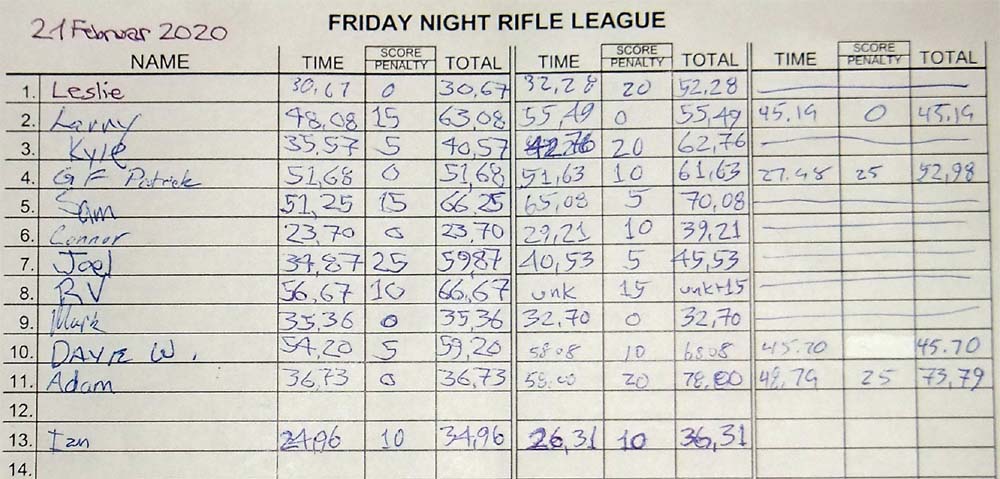 21 Februar 2020
FRIDAY NIGHT RIFLE LEAGUE
NAME TIME SCORE PENALTY TOTAL TIME SCORE PENALTY TOTAL TIME SCORE PENALTY TOTAL
1. Leslie 30,67 0 30,67 32,28 20 52,28
2. Larry 48,08 15 63,08 55,49 0 55,49 45.19 0 45,19
3. Kyle 35,57 5 40,57 42,76 20 62,76
4. GF Patrick 51,68 0 51,68 51,63 10 61,63 27.98 25 52,98
5. Sam 51,25 15 66,25 65,08 5 70,08
6. Connor 23,70 0 23,70 29,21 10 39,21
7. Joel 34,87 25 5987 40,53 5 45,53
8. RV 56,67 10 66,67 unk 15 unk+15
9. Mark 35,36 0 35,36 32,70 0 32,70
10. DAVE W. 54,20 5 59,20 58.08 10 68.08 45.70 45.70
11. Adam 36,73 0 36,73 58.00 20 78,00 48,79 25 73,79
12.
13. Ian 24,96 10 34,96 26,31 10 36,31
14.